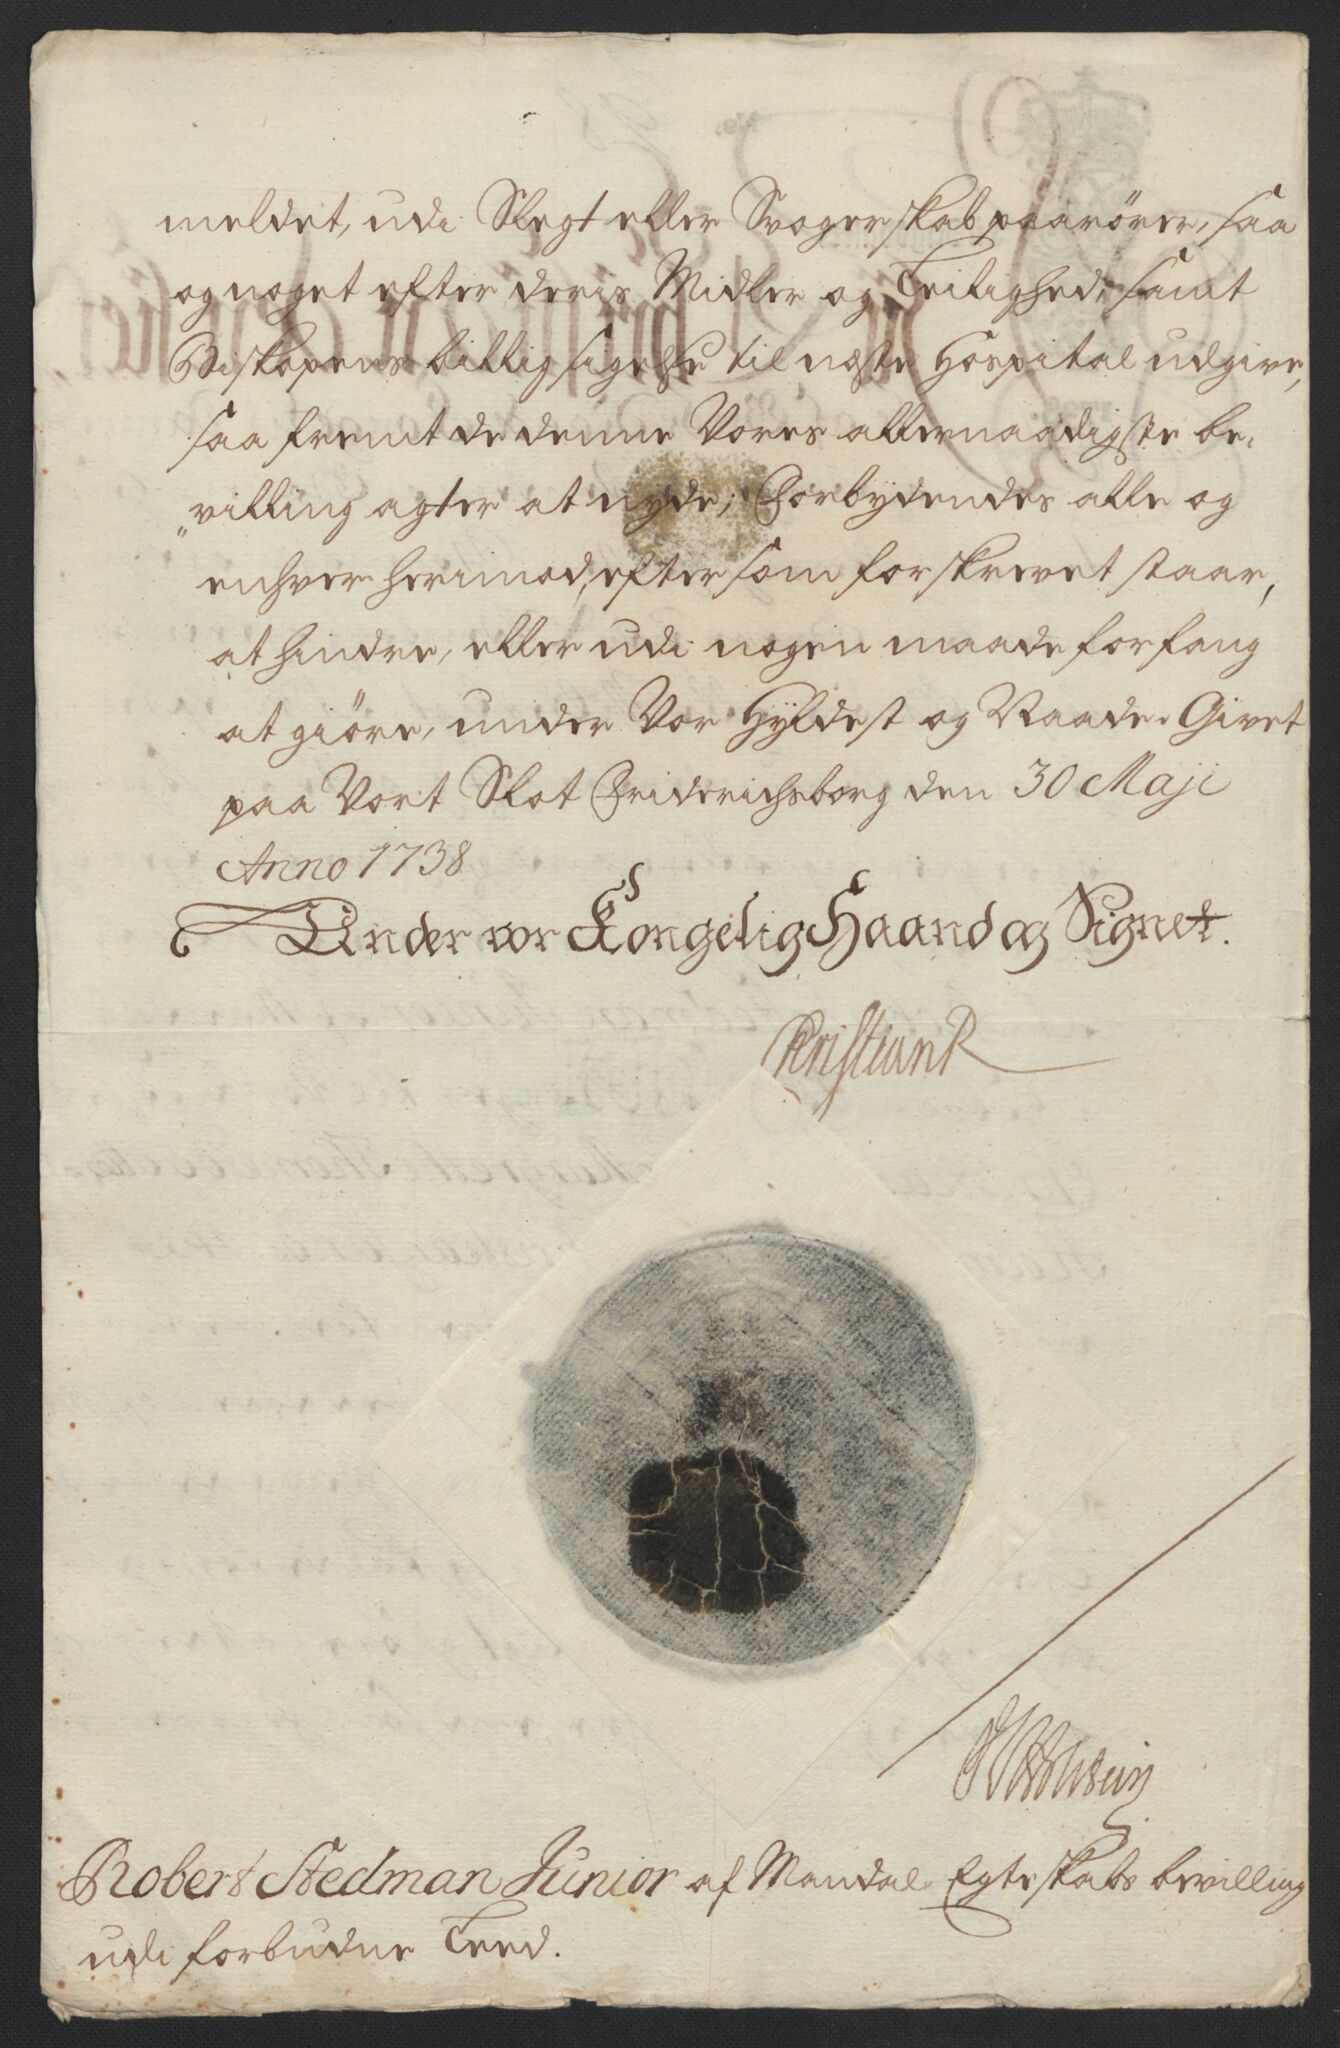 meldet, udi Slegt eller Svogerskab paarörer, saa
og noget efter deris Midler og Leilighed, samt
Biskopens billig sigelse til næste Hospital udgive,
saa fremt de denne Vores allernaadigste be-
villing agter at nyde; Forbydendes alle og
enhver herimod, efter som forskrevet staar,
at hindre, eller udi nogen maade forfang
at giöre, under Vor Hyldest og Naade. Givet
paa Vort Slot Friderichsborg den 30 Maji
Anno 1738
Under vor Kongelig Haand og Signet.
Christian R
Robert Stedman Junior af Mandal Egteskabs bevilling
udi forbudne Leed.